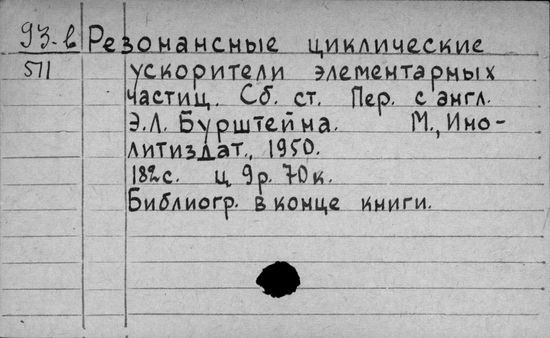 93-в Резонансные циклические
511 ускорители элементарных
частиц. Сб. ст. Пер. с англ.
Э.Л. Бурштейна. М., Ино-
литиздат., 1950.
182с. ц 9р. 70к.
Библиогр. в конце книги.